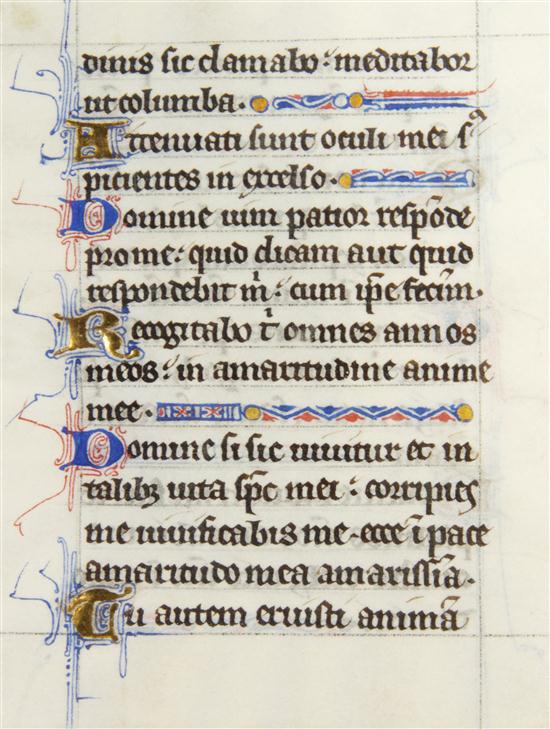 dinis sic clamabo: meditabor
ut columba.
Attenuati sunt oculi mei sꝰ
picientes in excelso.
Domine uim patior respōde
pro me: quid dicam aut quid
respondebit m̍: cum ip̄e fecim̄.
Recogitabo t̍ omnes annos
meos: in amaritudine anime
mee.
Domine si sic uiuitur et in
talibꝫ uita sp̄c mei: corripies
me uiuificabis me. ecce ī pace
amaritudo mea amarissīa.
Tu autem eruisti animā